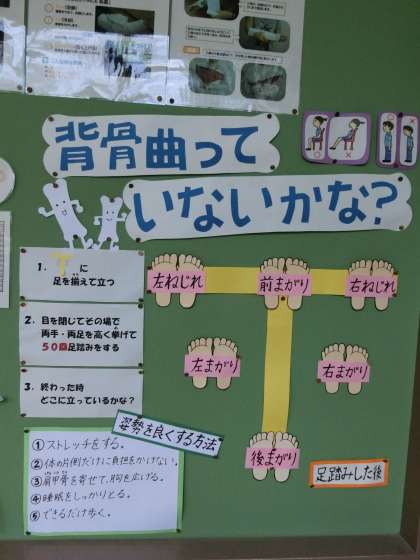 背骨曲って
いないかな?
1. Tに
足を揃えて立つ
2. 目を閉じてその場で
両手・両足を高く挙げて
50回足踏みをする
3. 終わった時
どこに立っているかな?
左ねじれ
前まがり
右ねじれ
左まがり
右まがり
後まがり
足踏みした後
姿勢を良くする方法
①ストレッチをする。
②体の片側だけに負担をかけない。
③肩甲骨を寄せて、胸を広げる。
④睡眠をしっかりとる。
⑤できるだけ歩く。